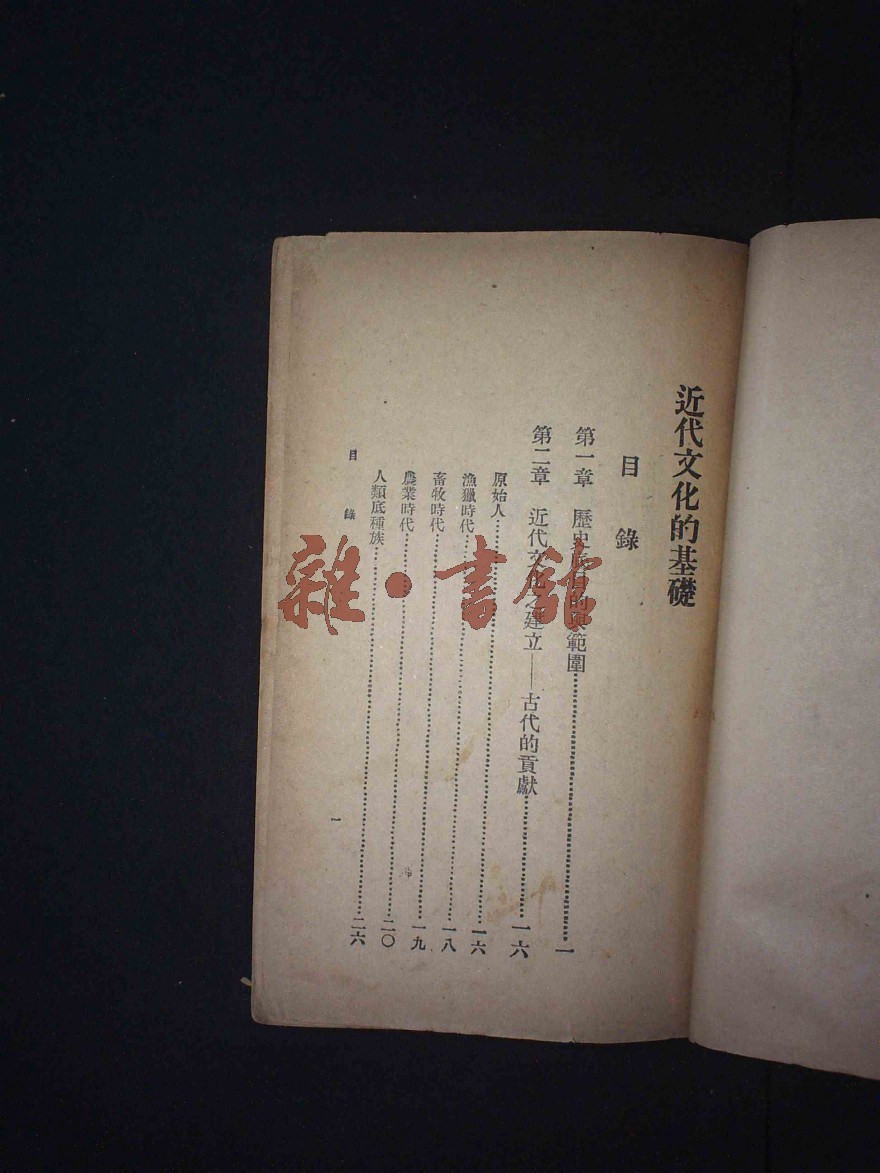 近代文化的基礎
目錄
第一章 歷史的與範圍……一
第二章 近代文化之建立——古代的貢獻……一六
原始人……一六
漁獵時代……一八
畜牧時代……一九
農業時代……二〇
人類底種族……二六
目錄 一
雜·書館